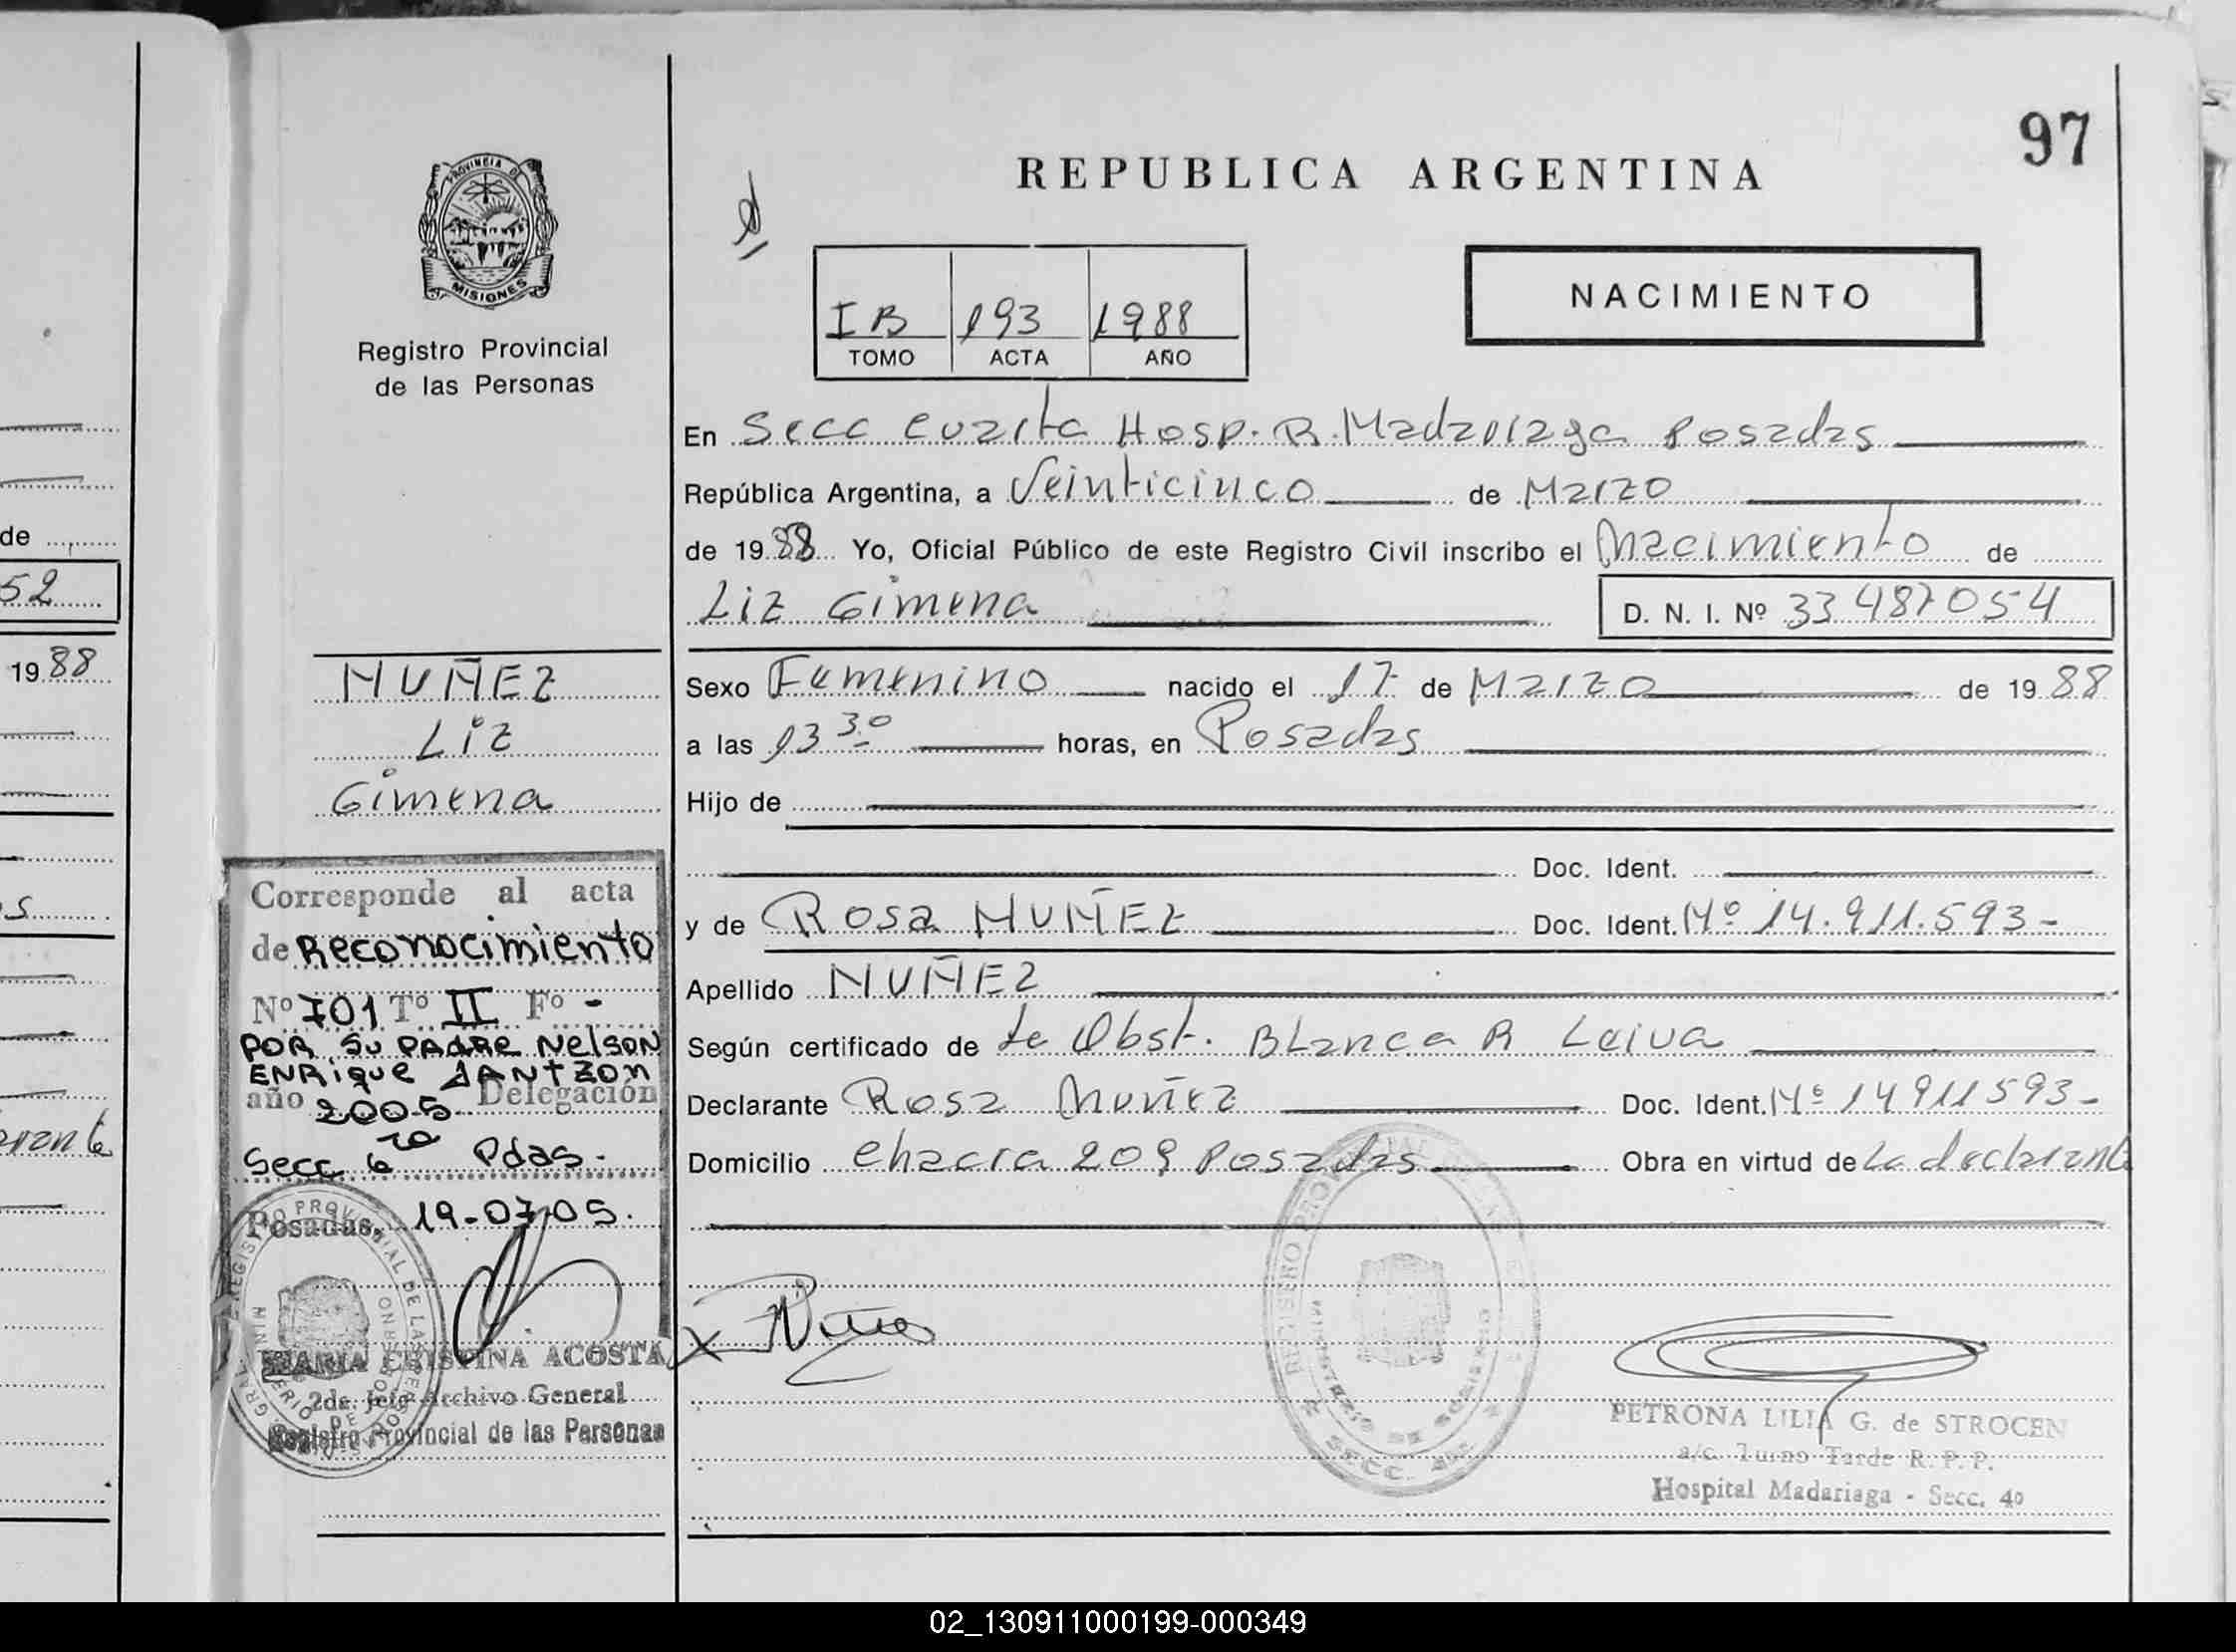 97
REPUBLICA ARGENTINA
PROVINCIA DE
MISIONES
Registro Provincial
de las Personas
IB 193 1988
TOMO ACTA AÑO
NACIMIENTO
En Secc Cuarta Hosp. R. Madariaga Posadas
República Argentina, a Veinticinco de Marzo
de 1988 Yo, Oficial Público de este Registro Civil inscribo el Nacimiento de
Liz Gimena D. N. I. Nº 33 487054
Sexo Femenino nacido el 17 de Marzo de 1988
a las 13 30 horas, en Posadas
Hijo de
Doc. Ident.
y de Rosa NUÑEZ Doc. Ident. Nº 14.911.593-
Apellido NUÑEZ
Según certificado de La Obst. Blanca R Leiva
Declarante Rosa Nuñez Doc. Ident. Nº 14911593-
Domicilio Chacra 209 Posadas Obra en virtud de La declarante
PETRONA LILIA G. de STROCEN
a/c. Turno Tarde R. P. P.
Hospital Madariaga - Secc. 4º
NUÑEZ
Liz
Gimena
Corresponde al acta
de Reconocimiento
Nº 701 Tº II Fº -
POR SU PADRE Nelson
ENRIQUE
año 2005 Delegación
Secc 6ta Pdas.
Posadas, 19-07-05.
MARIA CRISTINA ACOSTA
2da. Jefe Archivo General
Registro Provincial de las Personas
de
52
1988
02_130911000199-000349